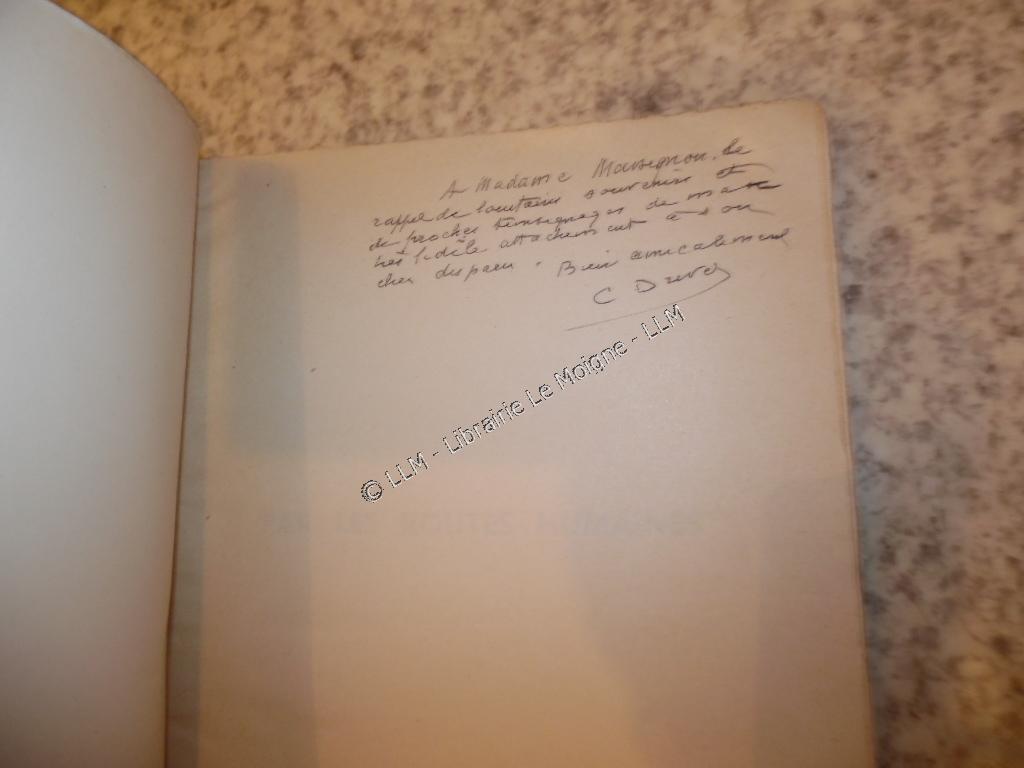 A Madame Massignon, ce
rappel de lointains souvenirs et
de proches témoignages de ma
très fidèle attachement à son
cher disparu. Bien amicalement
C Drevet
© LLM - Librairie Le Moigne - LLM
LES ROUTES HUMAINES